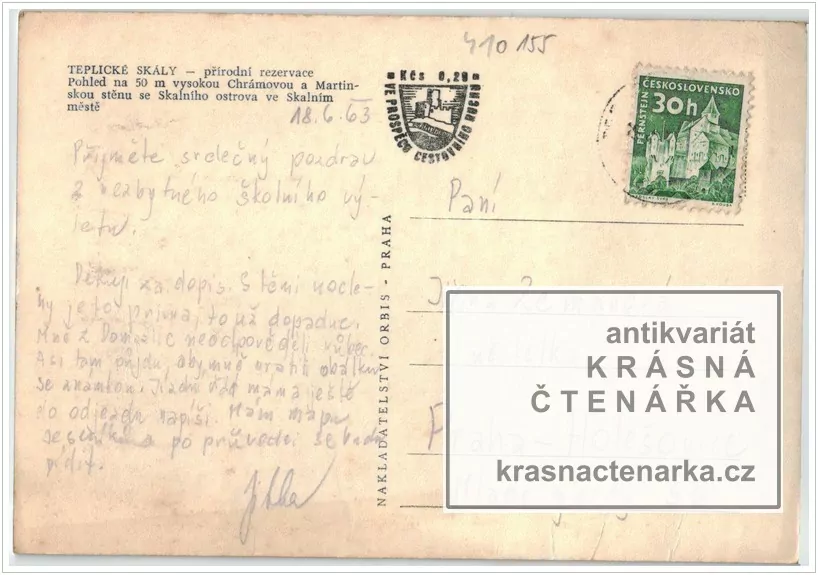 410 155
TEPLICKÉ SKÁLY — přírodní rezervace
Pohled na 50 m vysokou Chrámovou a Martin-
skou stěnu se Skalního ostrova ve Skalním
městě
18.6.63
Kčs 0,20
VE PROSPĚCH CESTOVNÍHO RUCHU
ČESKOSLOVENSKO
30h
PERNŠTEJN
Přijměte srdečný pozdrav
z nezbytného školního vý-
letu.
Děkuji za dopis. S těmi nocle-
hy je to prima, to už dopadne.
Mně z Domažlic neodpověděli vůbec.
Asi tam půjdu, aby mně vrátili obálku
se známkou. máma ještě
do odjezdu napíši. Mám mapu
a po průvodci se budu
pídit.
Jitka
NAKLADATELSTVÍ ORBIS - PRAHA
Paní
Praha - Holešovice
antikvariát
KRÁSNÁ
ČTENÁŘKA
krasnactenarka.cz